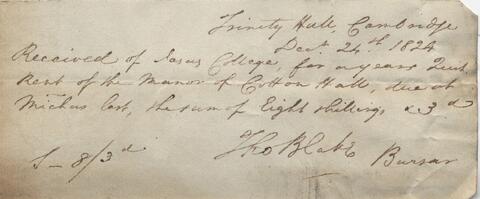 Trinity Hall, Cambridge
Decr. 24th 1824
Received of Jesus College, for a years Quit
Rent of the Manor of Cotton Hall, due at
Michas last, the sum of Eight shillings & 3d
Tho Blake Bursar
S - 8/3d